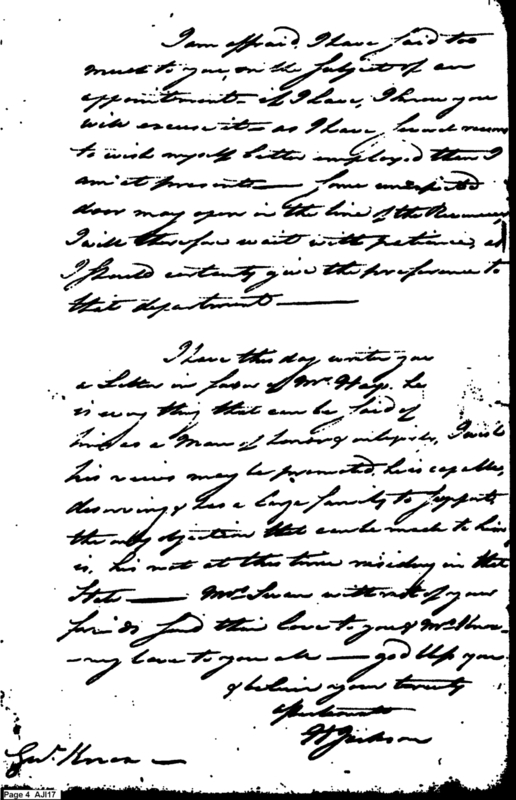 I am affraid, I have said too
much to you, on the subject of an
appointment - if I have, I know you
will excuse it - as I have several reasons
to wish myself better employed than I
am at present — some unexpected
door may open in the line of the Revenue
I will therefore wait with patience, as
I should certainly give the preference to
that department —
I have this day written you
a Letter in favor of Mr. Hays. he
is every thing that can be said of
him as a Man of honor & integrity, I wish
his views may be promoted, he is capable,
deserving & has a large family to support,
the only objection that can be made to him
is, his not at this time residing in that
State — Mrs. Swan with rest of your
friends send their love to you & Mrs. Knox -
- my love to you all — god bless you
& believe your
affectionate
H Jackson
Genl. Knox —
Page 4 AJI17